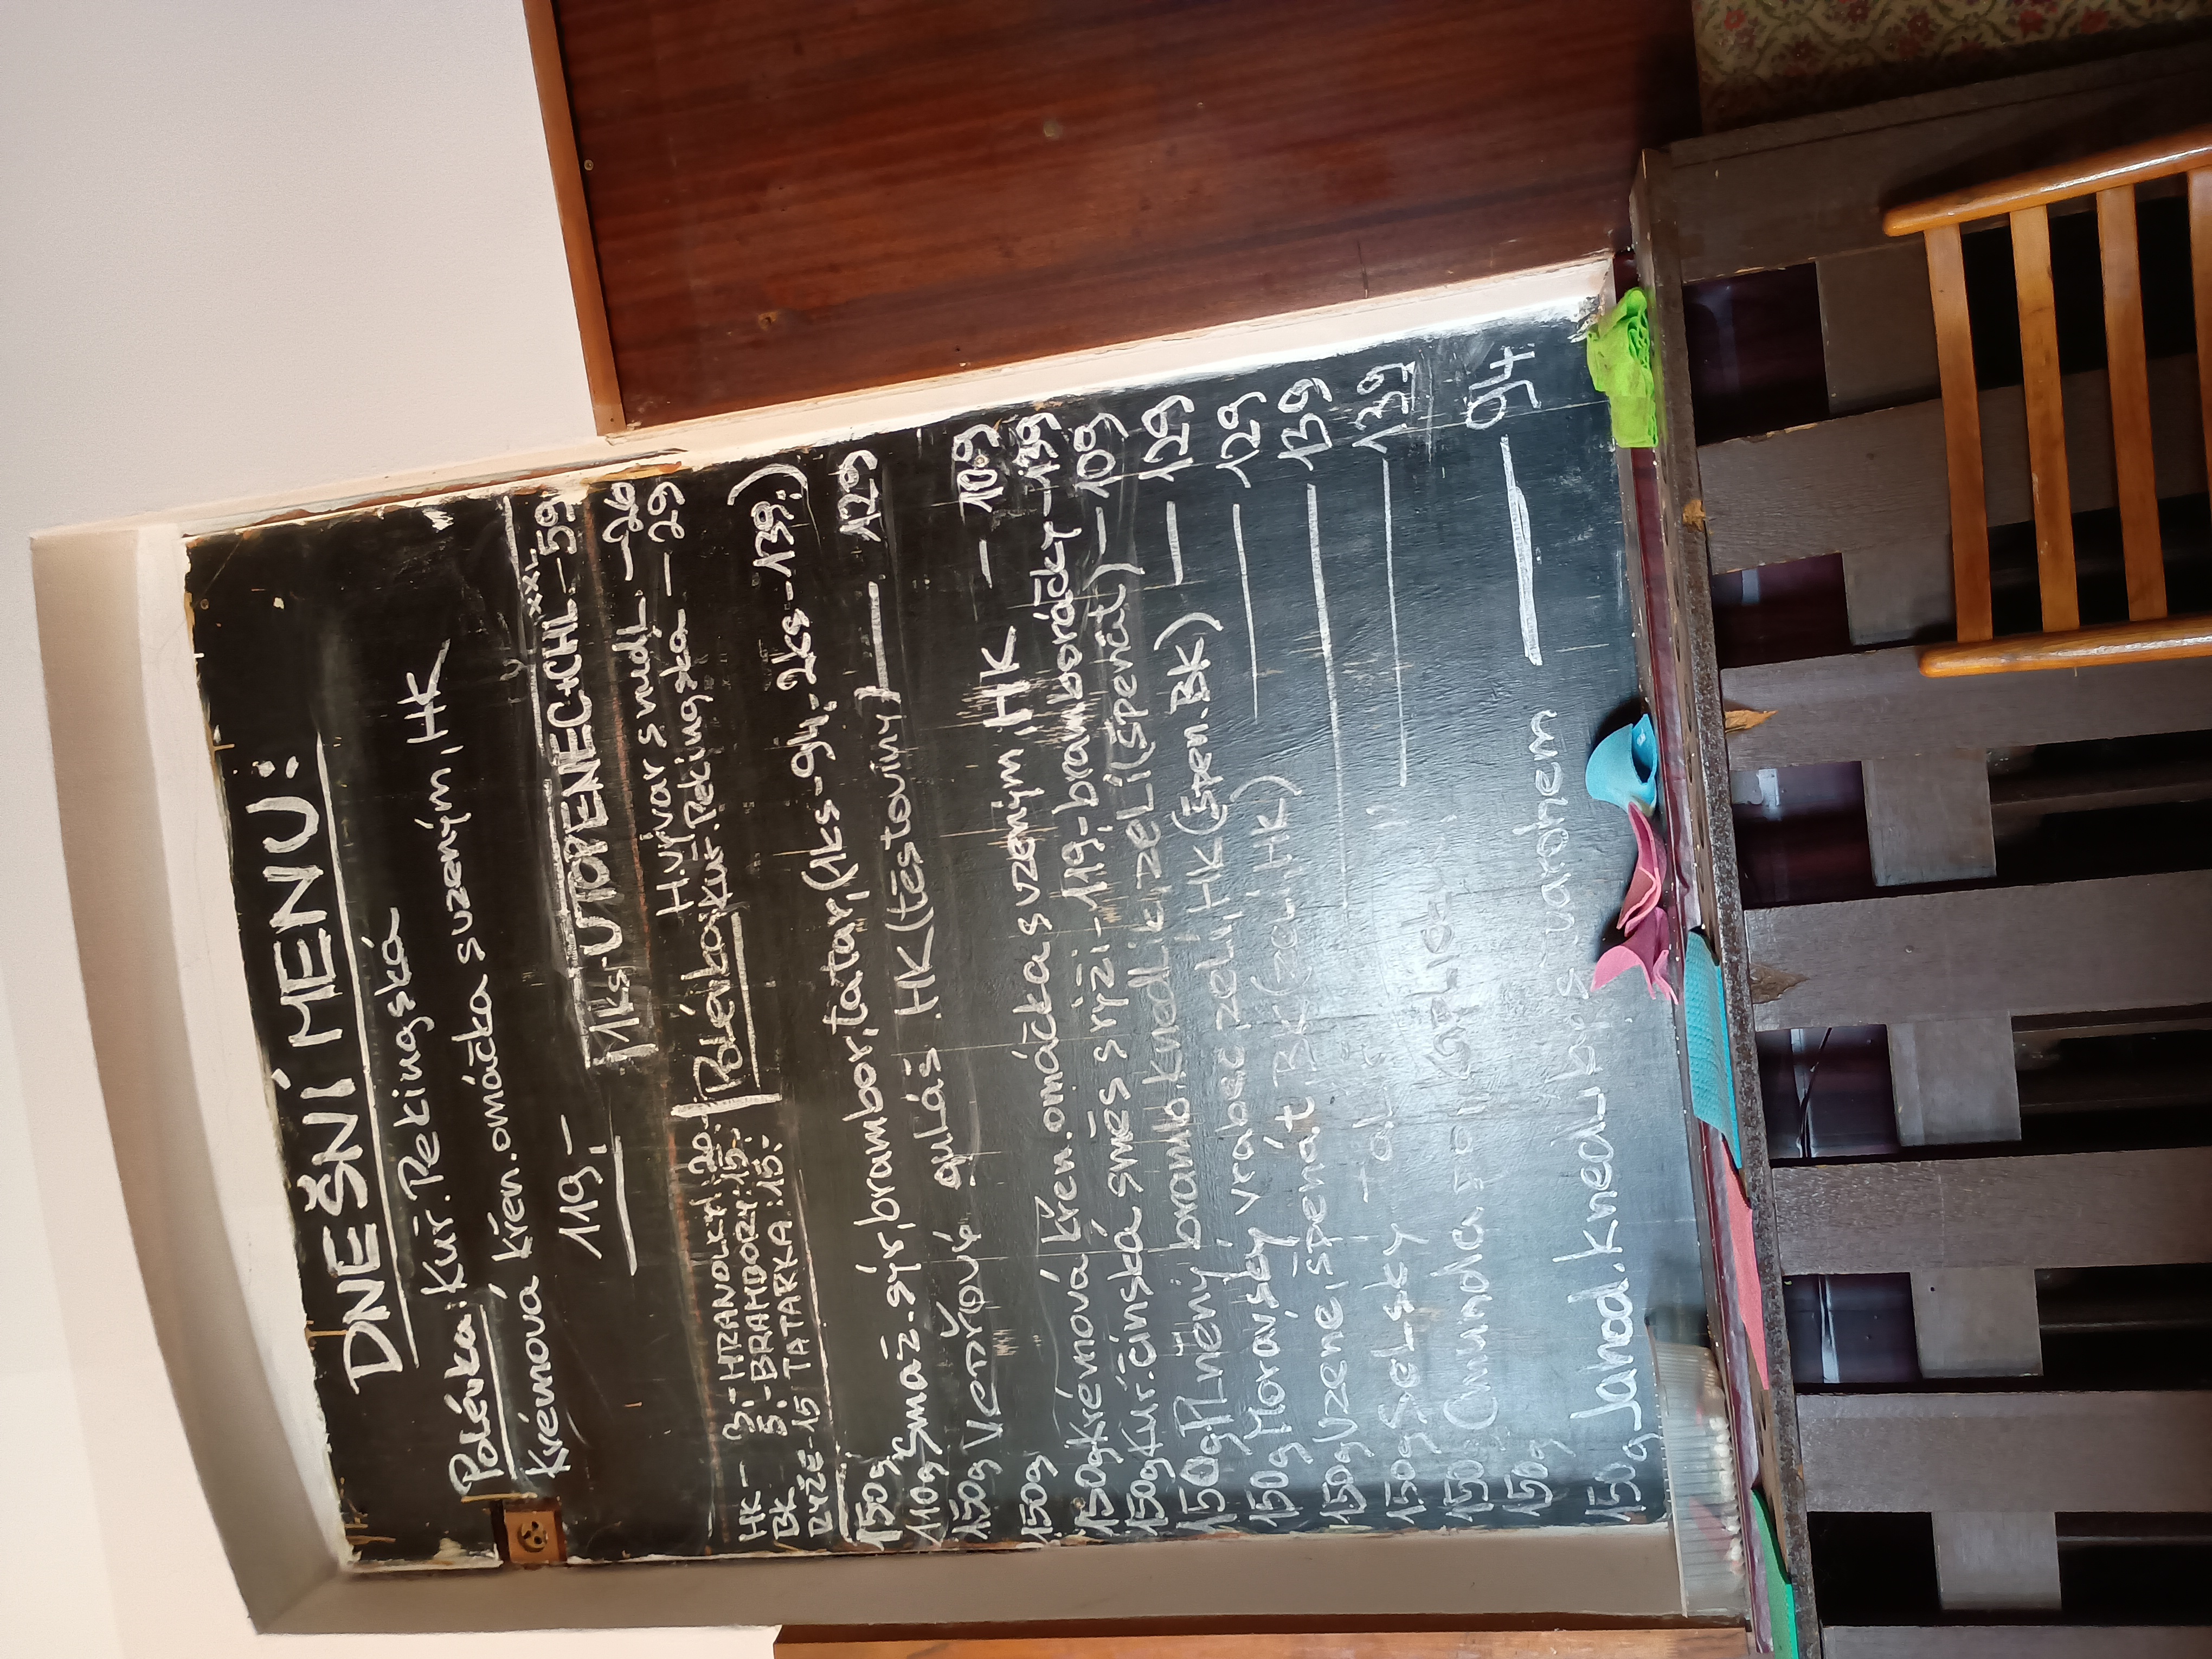 DNEŠNÍ MENU:
Polévka: Kuř. Pekingská
Krémová křen. omáčka s uzeným, HK
119,-
XXL
1ks-UTOPENEC+CHL.-59
H.vývar s nudl. -26
Polévka: Kuř. Pekingská -29
HK- 3.- HRANOLKY: 20.-
BK 5.- BRAMBORY: 15.-
RÝŽE-15 TATARKA: 15.-
150g Smaž. sýr, brambor, tatar, (1ks-94,-2ks-139.)
110g
150g Vepřové guláš HK (těstoviny) 129
150g Krémová křen. omáčka s uzeným, HK - 109
150g Kuř. čínská směs s rýží - 119,- bramboráčky -139
150g Plněný bramb. knedlík, zelí (špenát) - 109
150g Moravský vrabec zelí, HK (špen. BK) 129
150g Uzené, špenát BK (zelí, HK) 129
150g Selský 139
150g 139
150g
150g Jahod. knedlíky s tvarohem 94